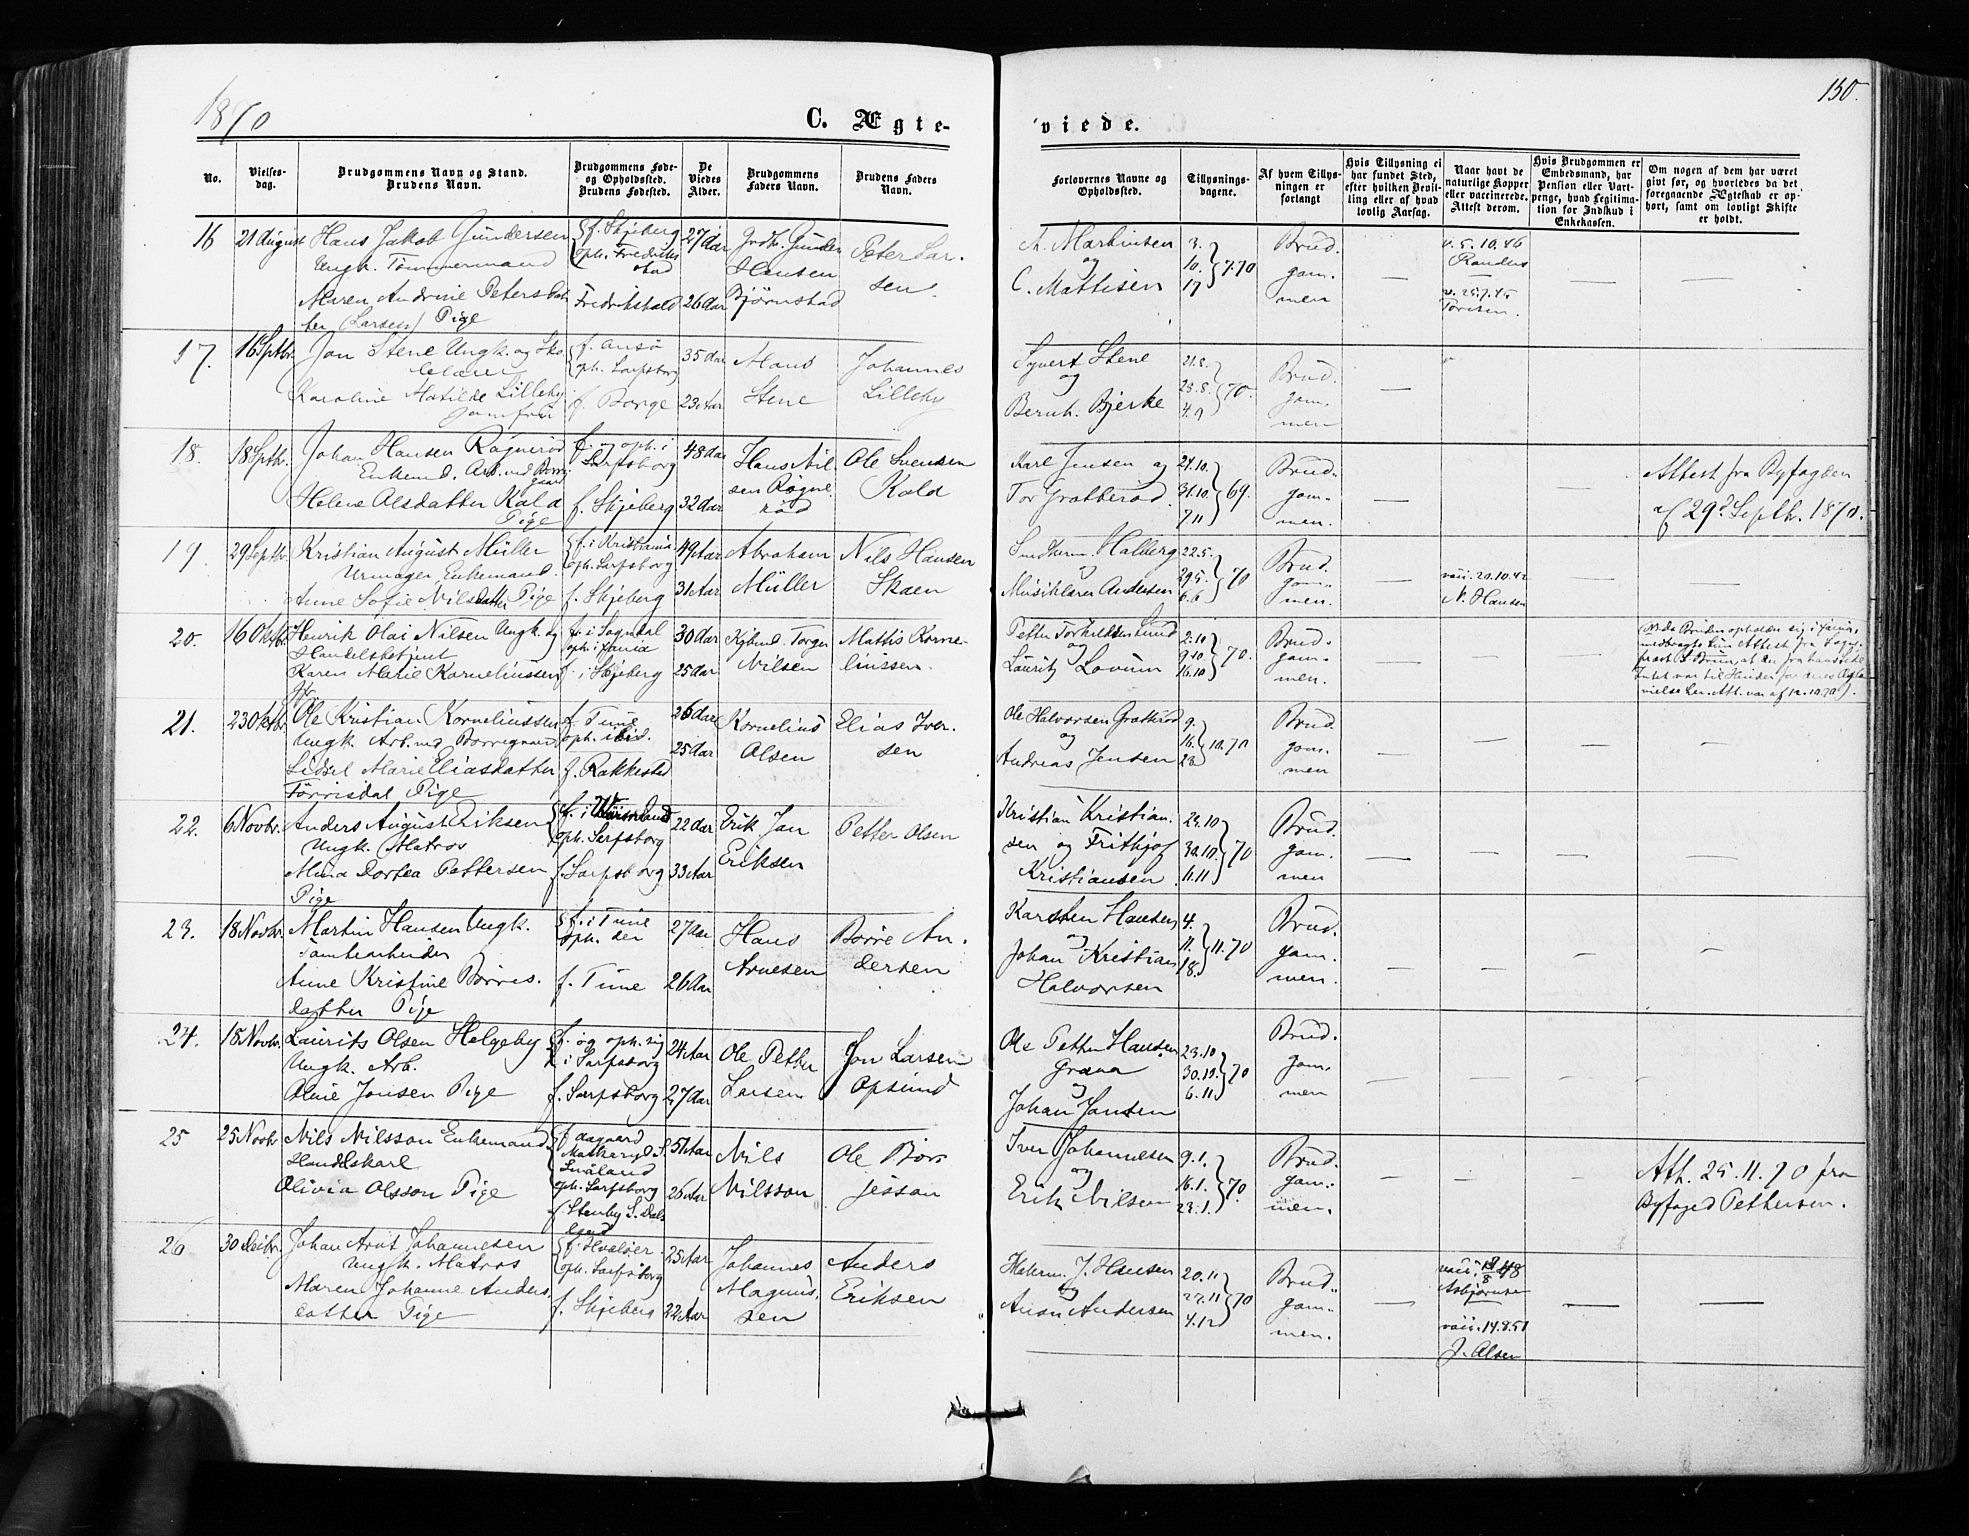 1870
C. Ægte-
viede.
150.
No.
Vielses-
dag.
Brudgommens Navn og Stand.
Brudens Navn.
Brudgommens Føde-
og Opholdssted.
Brudens Fødested.
De
Viedes
Alder.
Brudgommens
Faders Navn.
Brudens Faders
Navn.
Forlovernes Navne og
Opholdssted.
Tillysnings-
dagene.
Af hvem Tillys-
ningen er
forlangt
Hvis Tillysning ei
har fundet Sted,
efter hvilken Bevil-
ling eller af hvad
lovlig Aarsag.
Naar havt de
naturlige Kopper
eller vaccinerede.
Attest derom.
Hvis Brudgommen er
Embedsmand, har
Pension eller Vart-
penge, hvad Legitima-
tion for Indskud i
Enkekassen.
Om nogen af dem har været
givt før, og hvorledes da det
foregaaende Ægteskab er op-
hørt, samt om lovligt Skifte
er holdt.
16
21 August
Hans Jakob Gundersen
Ungk. Tømmermand
Maren Andrine Petersdat-
ter (Larsen) Pige
f. Skjeberg
oph. Fredriks
stad
Fredrikstad
27 Aar
26 Aar
Gunder
Hansen
Bjørnstad
Peter Lar-
sen.
A. Martinsen
og
C. Mattisen
3.
10.
17
7.70
Brud-
gom-
men
v. 5.10.46
Randers
v. 25.7.45
Toresen.
17.
16 Septbr.
Jon Stene Ungk. og Sko-
lelærer
Karoline Matilde Lilleby
Jomfru
oph. Sarpsborg
f. Borge
35 Aar
23 Aar
Mons
Stene
Johannes
Lilleby
Syvert Stene
og
Bernh. Bjerke
21.8.
28.8.
4.9
70.
Brud-
gom-
men
18.
18 Septbr.
Johan Hansen Røgnerød
Enkemd. Arb. ved Borre-
gaard
Helene Olsdatter Kald
Pige
f. og oph. i
Sarpsborg
f. Skjeberg
48 Aar
32 Aar
Hans Nil-
sen Røgne-
rød
Ole Svensen
Kald
Karl Jensen og
Tor Gratterød
24.10.
31.10.
7.11
69.
Brud-
gom-
men.
Attest fra Byfogden
af 29d Septbr. 1870.
19.
29 Septbr.
Kristian August Müller
Urmager, Enkemand.
Anne Sofie Nilsdatter Pige
f. i Kristiania
oph. Sarpsborg
f. Skjeberg
49 Aar
31 Aar
Abraham
Müller
Nils Hansen
Skaen
Halberg
og
Musiklærer Andersen
22.5.
29.5.
6.6
70
Brud-
gom-
men.
vacc. 20.10.42
N. Hansen
20.
16 Oktbr.
Henrik Olai Nilsen Ungk. og
Handelsbetjent
Karen Marie Korneliussen
Jfr.
f. i Sogndal
f. i Skjeberg
30 Aar
25 Aar
Nilsen
Mattis Korne-
liussen.
Petter Torkildsen Lund
og
Lauritz Lovum
2.10
9.10.
16.10
70.
Brud-
gom-
men.
21.
23 Oktbr.
Ole Kristian Korneliussen
Ungk. Arb. ved Borregaard
Lidsel Marie Eliasdatter
Torrisdal Pige
f. Tune
oph. ibid.
f. Rakkestad
26 Aar
25 Aar
Kornelius
Olsen
Elias Iver-
sen
Ole Halvorsen Gratterød
og
Andreas Jensen
9.
16.
23
10.70
Brud-
gom-
men
22.
6 Novbr.
Anders August Eriksen
Ungk. Matros
Mina Dortea Pettersen
Pige
f. i Wärmland
oph. Sarpsborg
f. Sarpsborg
22 Aar
33 Aar
Erik Jan
Eriksen
Petter Olsen
Kristian Kristian-
sen og Frithjof
Kristiansen
23.10
30.10.
6.11
70
Brud-
gom-
men
23.
18 Novbr.
Martin Hansen Ungk.
Tomtearbeider
Anne Kristine Børres-
datter Pige
f. i Tune
oph. der
f. Tune
27 Aar
26 Aar
Hans
Arnesen
Børre An-
dersen
Karsten Hansen
og
Johan Kristian
Halvorsen
4.
11.
18.
11.70
Brud-
gom-
men.
24.
18 Novbr.
Laurits Olsen Helgeby
Ungk. Arb.
Oline Jonsen Pige
f. og oph. sig
i Sarpsborg
f. Sarpsborg
24 Aar
27 Aar
Ole Petter
Larsen
Jon Larsen
Opsund
Ole Petter Hansen
Graaa
og
Johan Jonsen
23.10
30.10.
6.11
70
Brud-
gom-
men
25
25 Novbr
Nils Nilsson Enkemand
Handelskarl
Olivia Olsson Pige
Småland
oph. Sarpsborg
f Stenby S. Dals
land
51 Aar
26 Aar
Nils
Nilsson
Ole Bør-
jesson
Iver Johannesen
og
Erik Nilsen
9.1.
16.1.
23.1.
70
Brud-
gom-
men.
Att. 25.11.70 fra
Byfoged Pettersen.
26
30 Decbr.
Johan Arnt Johannesen
Ungk. Matros
Maren Johanne Anders-
datter Pige
f. Hvaløer
oph. Sarpsborg
f. Skjeberg
25 Aar
22 Aar
Johannes
Magnus-
sen
Anders
Eriksen
J. Hansen
og
Anton Andersen
20.11
27.11
4.12
70
Brud-
gom-
men.
Asbjørnsen
vacc. 14.8.51
J. Olsen